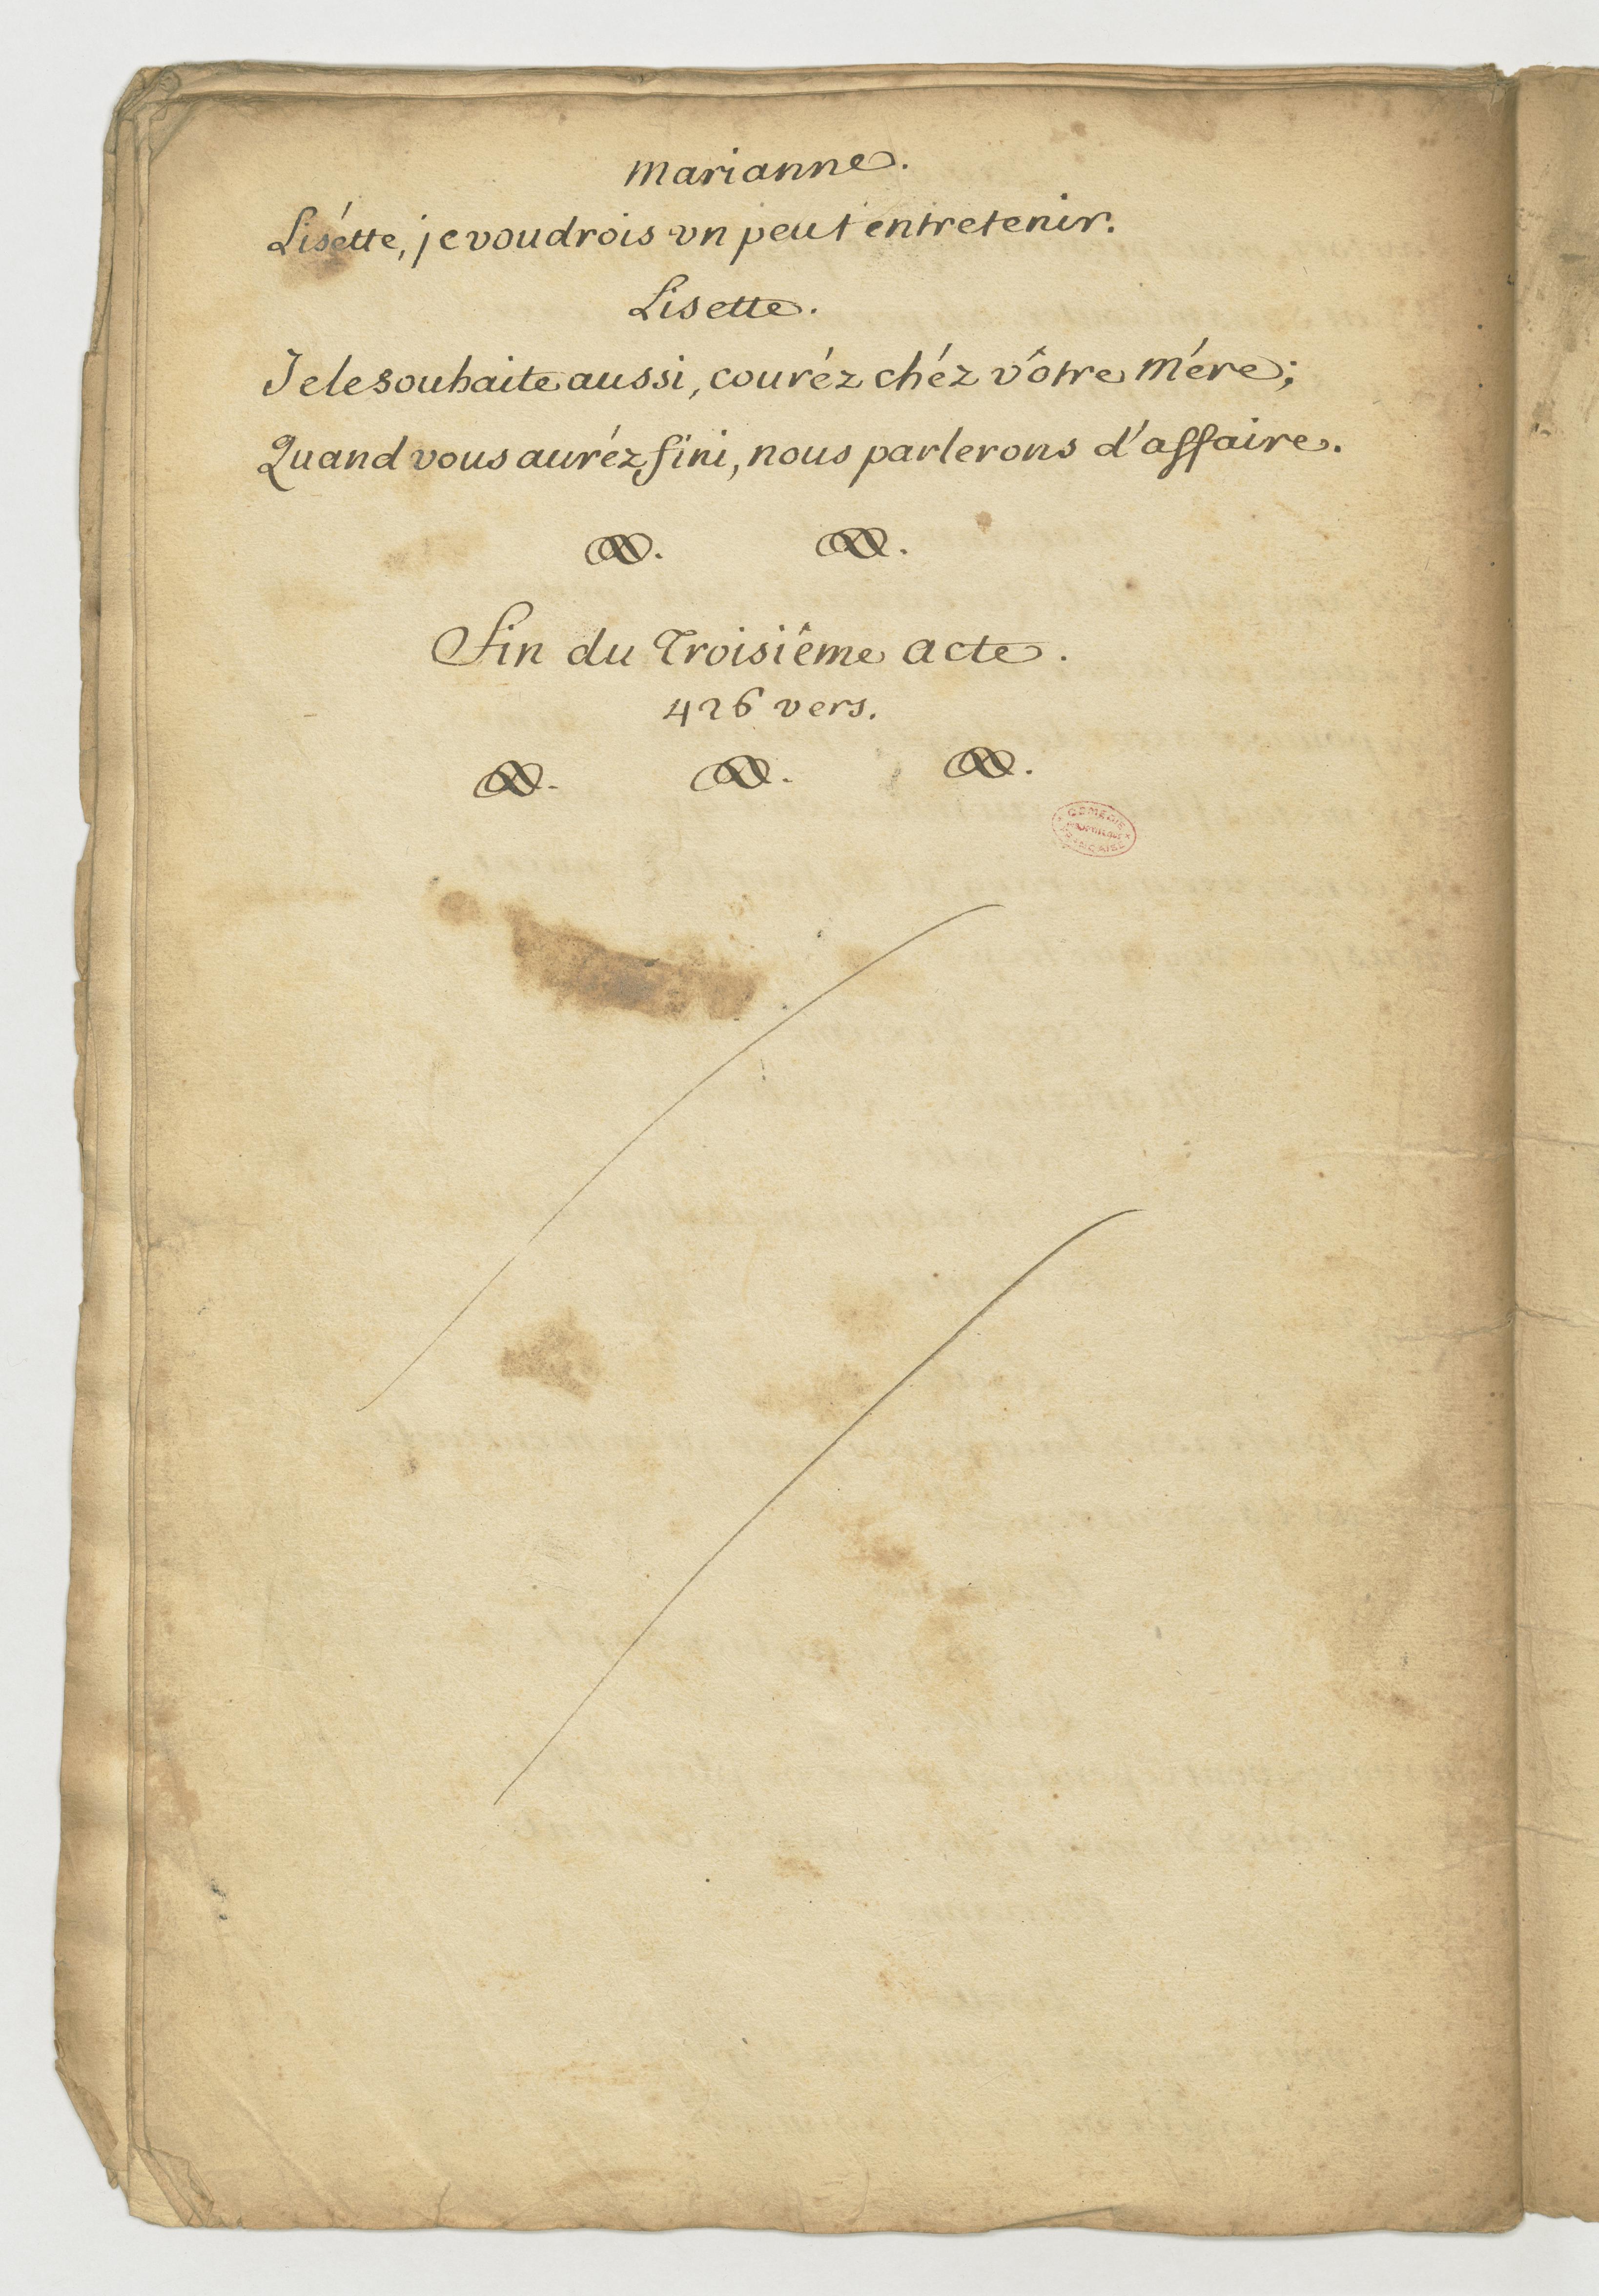 Marianne.
Lisétte, je voudrois vn peu t'entretenir.
Lisette.
Je le souhaite aussi, couréz chéz vôtre Mére;
Quand vous auréz fini, nous parlerons d'affaire.
Fin du Troisiême acte.
426 vers.
COMÉDIE
FRANÇAISE